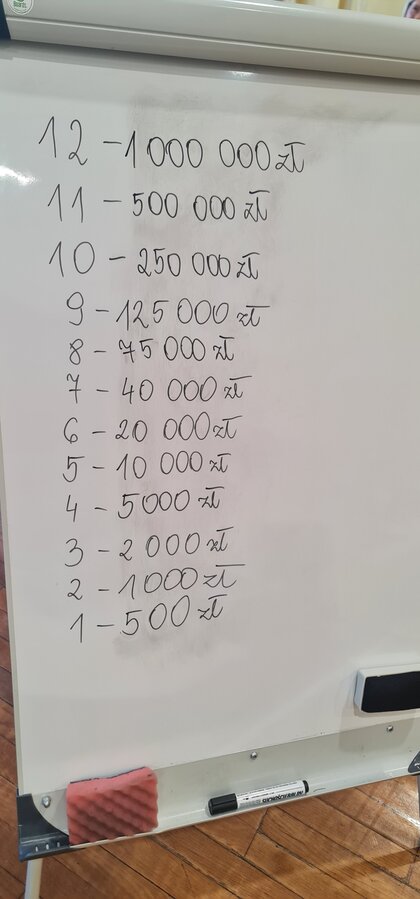 12 – 1 000 000 zł
11 – 500 000 zł
10 – 250 000 zł
9 – 125 000 zł
8 – 75 000 zł
7 – 40 000 zł
6 – 20 000 zł
5 – 10 000 zł
4 – 5000 zł
3 – 2 000 zł
2 – 1000 zł
1 – 500 zł